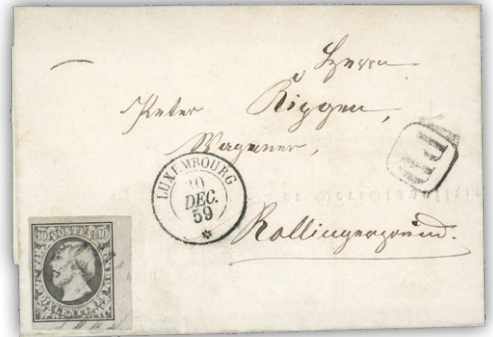 Herrn
Peter Riggen,
Wagener,
LUXEMBOURG
10
DEC.
59
Rollingergrund.
10 POSTES 10